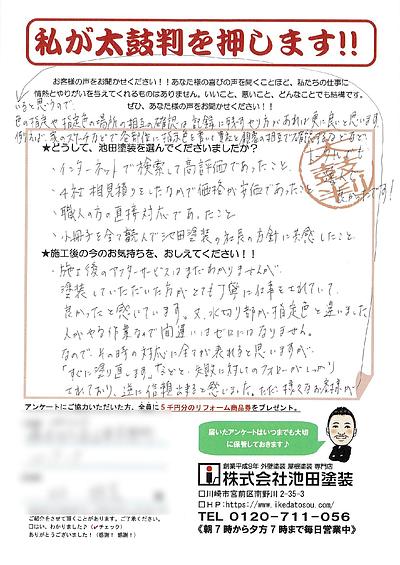 私が太鼓判を押します!!
お客様の声をお聞かせください!!あなた様の喜びの声を聞くことほど、私たちの仕事に
情熱とやりがいを与えてくれるものはありません。いいこと、悪いこと、どんなことでも結構です。
ぜひ、あなた様の声をお聞かせください!!
いると思うので、
色の指定や指定色の場所の相互の確認は記録に残すやり方があれば更に良いと思います。
★どうして、池田塗装を選んでくださいましたか?
・インターネットで検索して高評価であったこと。
・4社相見積りをしたなかで価格が安価であったこと
・職人の方の直接対応であったこと
・小冊子を全て読んで池田塗装の社長の方針に共感したこと
★施工後の今のお気持ちを、おしえてください!!
・施工後のアフターサービスはまだわかりませんが、
塗装していただいた方がとても丁寧に仕事をされていて、
良かったと感じています。又、水切り部が指定色と違いました。
人がやる作業なので間違いはゼロにはなりません。
なので、その時の対応に全てが表れると思いますが、
「すぐに塗り直します。」などと、失敗に対してのフォローがしっかり
されており、逆に信頼出来ると感じました。ただ、様々なお客様が
アンケートにご協力いただいた方、全員に5千円分のリフォーム商品券をプレゼント。
届いたアンケートはいつまでも大切に保管しております♪
創業平成9年 外壁塗装 屋根塗装 専門店
株式会社池田塗装
□川崎市宮前区南野川2-35-3
□HP:https://www.ikedatosou.com/
TEL 0120-711-056
《朝7時から夕方7時まで毎日営業中》
ご紹介をさせて頂くことがあります。ご了承ください。
□はい。わかりました♪(✔チェック)
ありがとうございました!(感謝!感謝!)